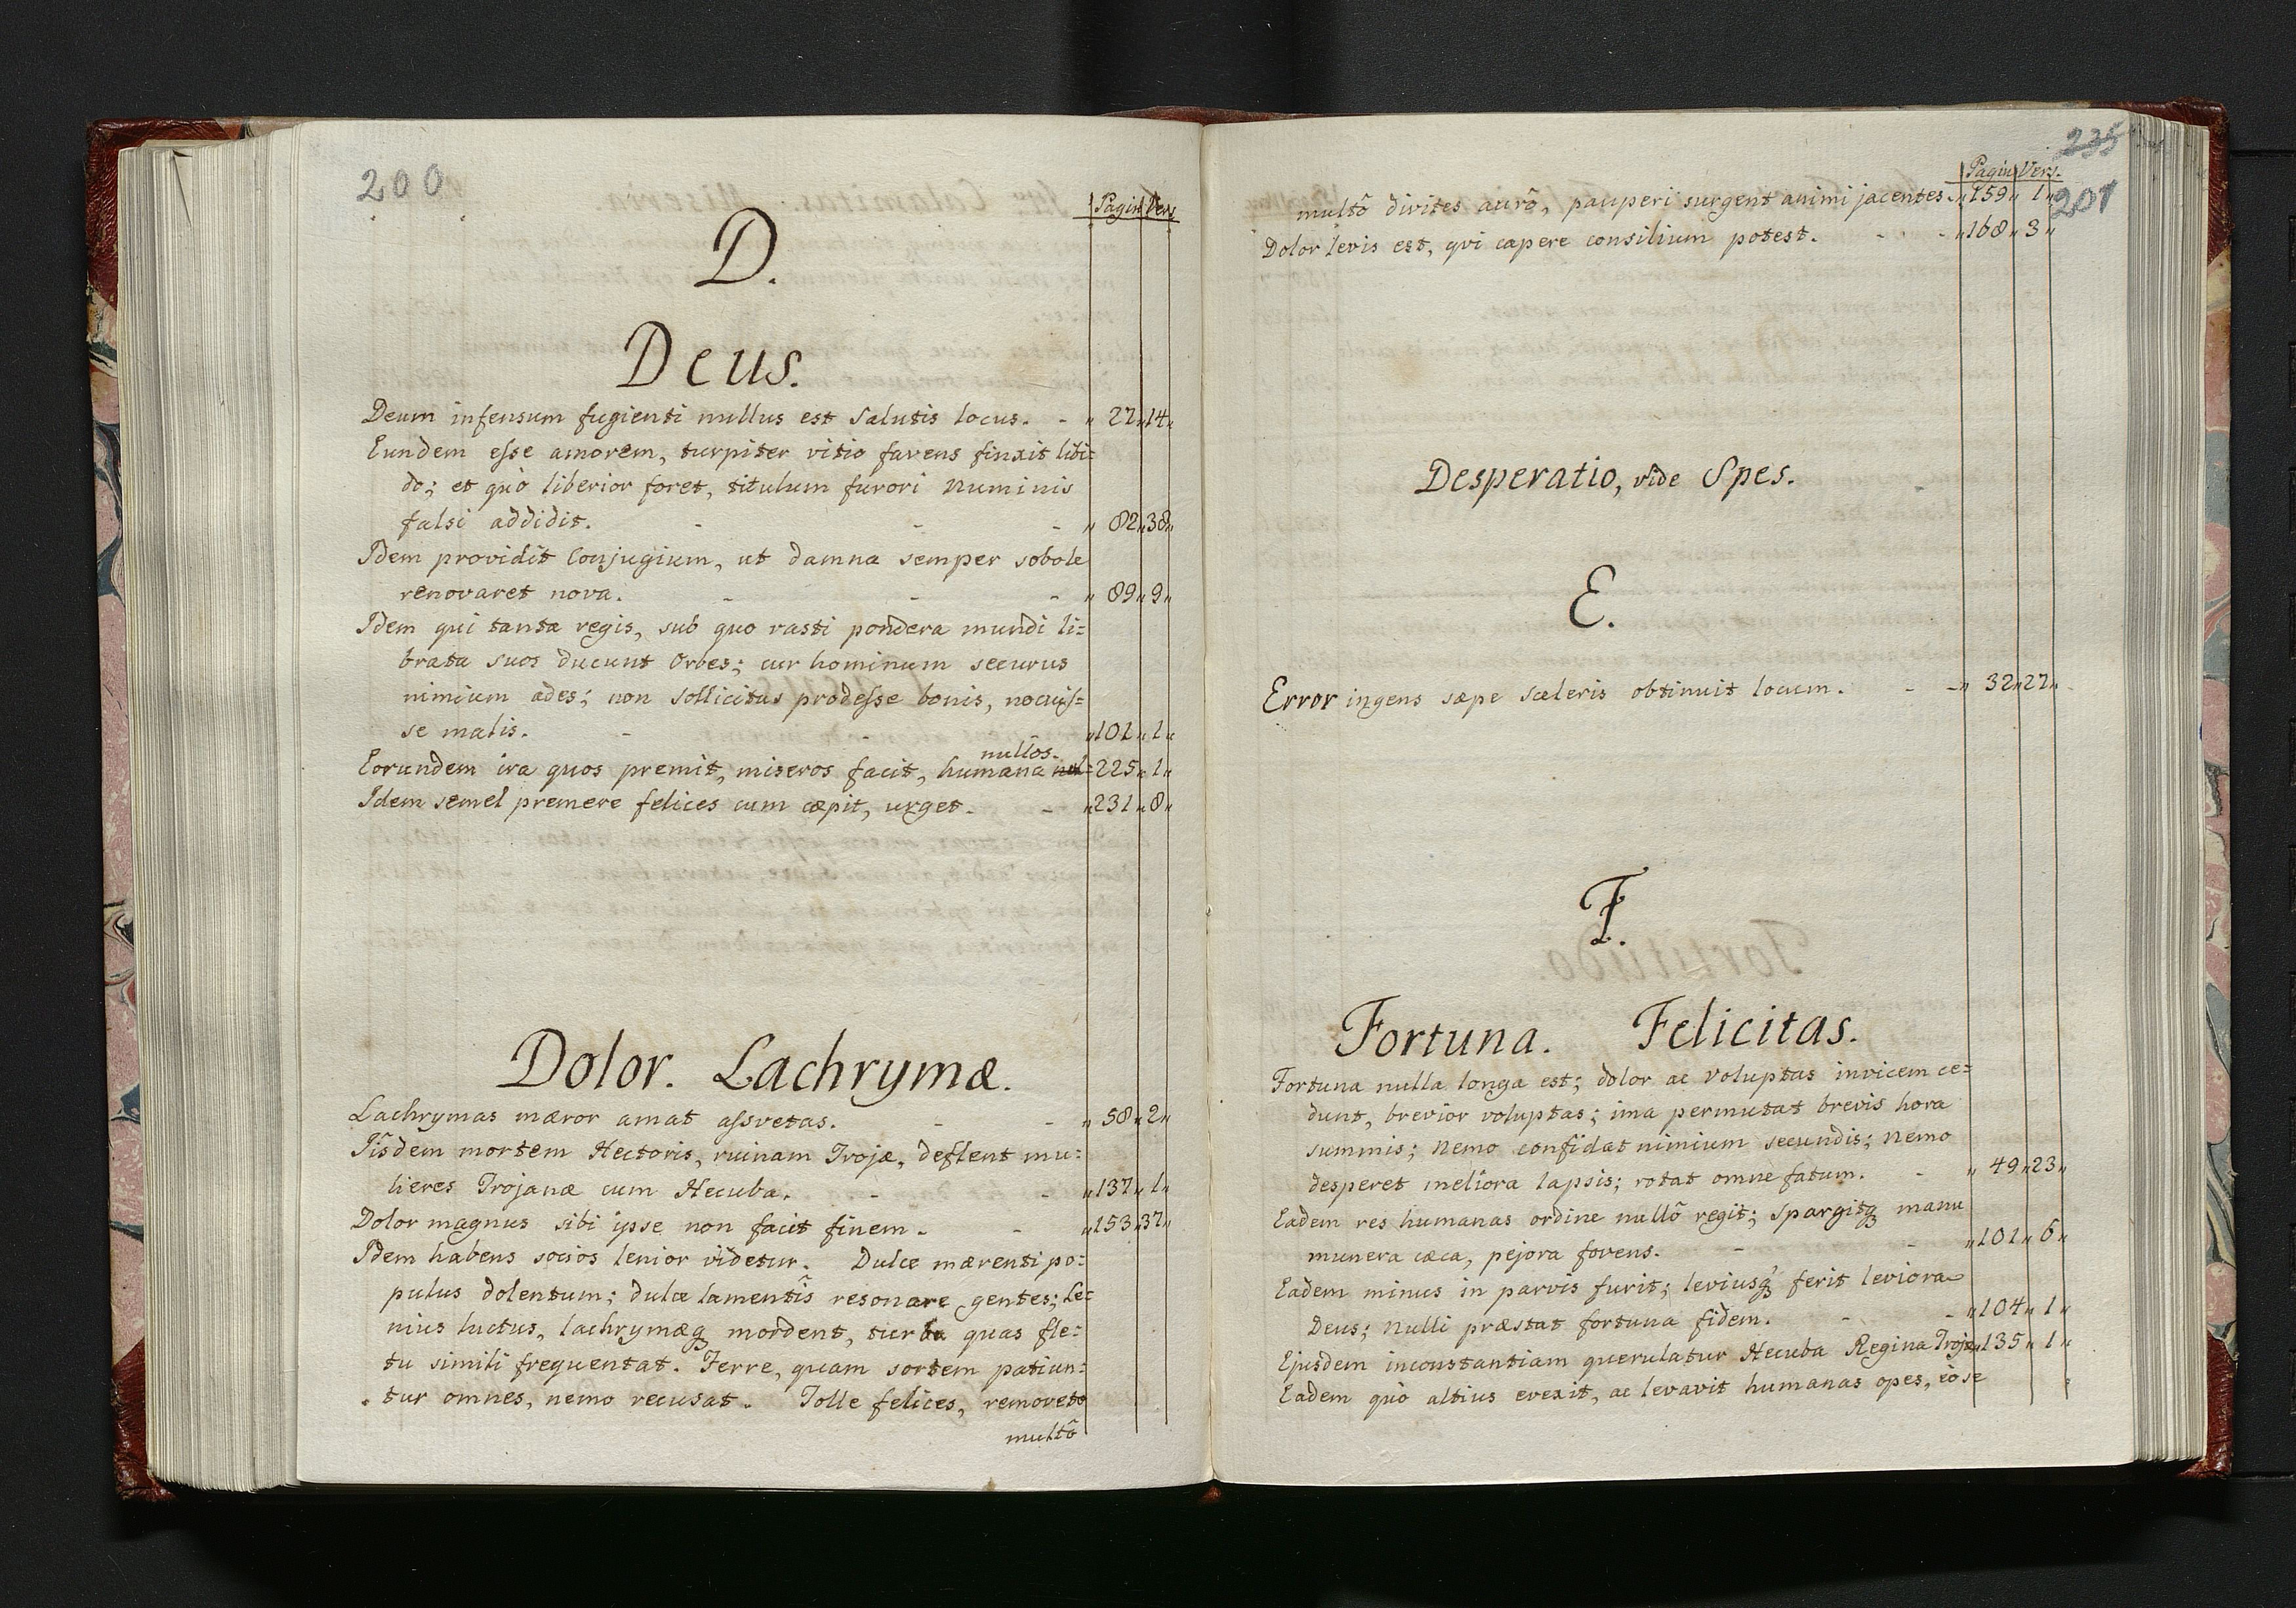 200
Pagin Vers
D.
Deus.
Deum infensum fugienti nullus est Salutis locus. - „ 22„14„
Eundem esse amorem, turpiter vitio favens finxit libi=
do; et quò liberior foret, titulum furori Numinis
falsi addidit. - - - „ 82„38„
Idem providit Conjugium, ut damna semper sobole
renovaret nova. - - - „ 89„9„
Idem qui tanta regis, sub quo vasti pondera mundi li=
brata suos ducunt Orbes; cur hominum securus
nimium ades; non sollicitus prodesse bonis, nocuis=
se malis. - - „101„1„
nullos.
Eorundem ira quos premit, miseros facit, humana nul= 225„1„
Idem semel premere felices cum cæpit, urget. - „231„8„
Dolor. Lachrymæ.
Lachrymas mæror amat assvetas. - - „ 58„2„
Iisdem mortem Hectoris, ruinam Trojæ, deflent mu=
lieres Trojanæ cum Hecuba. - - „137„1„
Dolor magnus sibi ipse non facit finem. - „153„37„
Idem habens socios lenior videtur. Dulce mærenti po=
pulus dolentum; dulce lamentis resonare gentes; le=
nius luctus, lachrymæq; mordent, turba quas fle=
tu simili frequentat. Ferre, quam sortem patiun=
tur omnes, nemo recusat. Tolle felices, removeto
multô
235
201
Pagin Vers.
multô divites aurô, pauperi surgent animi jacentes. „159„ 1„
Dolor levis est, qvi capere consilium potest. - - - „168„3„
Desperatio, vide Spes.
E.
Error ingens sæpe sceleris obtinuit locum. - - „ 32„22„
F.
Fortuna. Felicitas.
Fortuna nulla longa est; dolor ac voluptas invicem ce=
dunt, brevior voluptas; ima permutat brevis hora
summis; Nemo confidat nimium secundis; nemo
desperet meliora lapsis; rotat omne fatum. - „ 49„23„
Eadem res humanas ordine nullô regit; spargitq; manu
munera cæca, pejora fovens. - - „101„6„
Eadem minus in parvis furit; leviusq; ferit leviora
Deus; Nulli præstat fortuna fidem. - - „104„1„
Ejusdem inconstantiam querulatur Hecuba Regina Trojæ „135„1„
Eadem quò altius evexit, ac levavit humanas opes, eò se